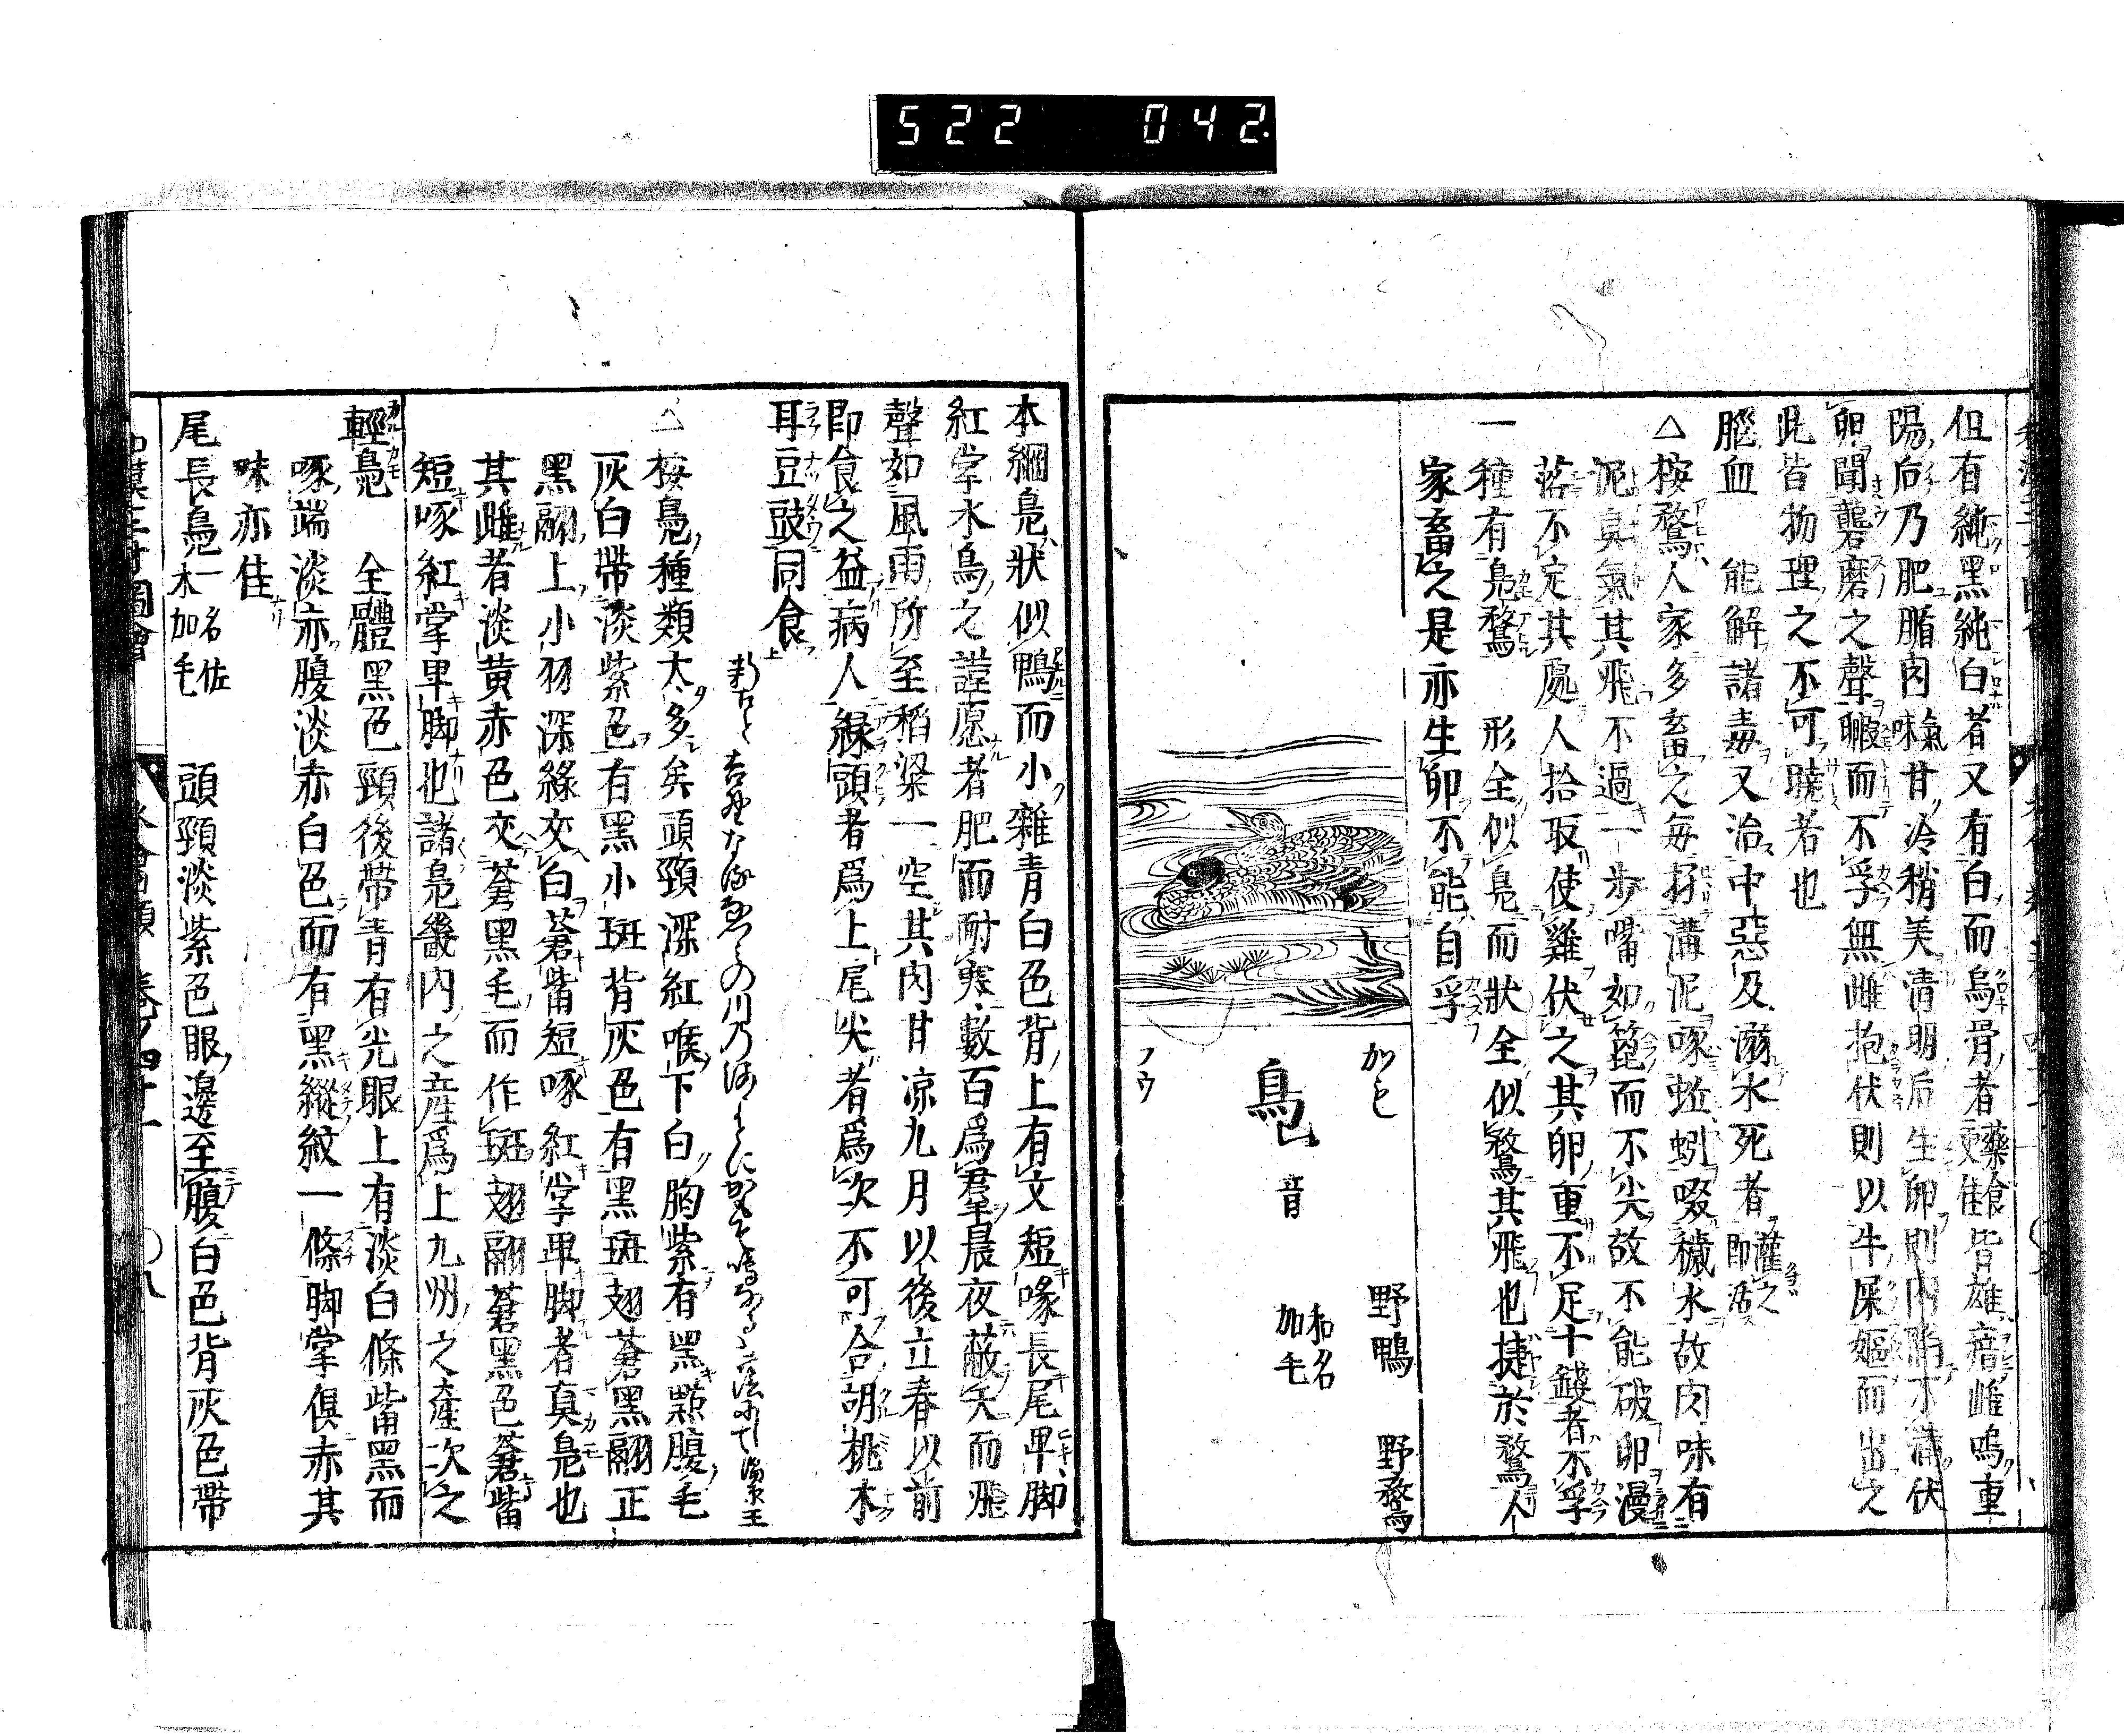 522 042
但有純黑純白者又有白而烏骨者藥食更佳皆雄瘖雌鳴重
陽后乃肥腯肉氣味甘冷稍美清明后生卵則内陷不滿伏
卵聞礱磨之聲則毈而不孚無雌抱伏則以牛屎嫗而出之
此皆物理之不可曉者也
腦血 能解諸毒又治中惡及溺水死者灌之即活
△桉鶩人家多畜之毎探溝泥啄蚯蚓啜穢水故肉味有
泥臭氣其飛不過一歩嘴如箆而不尖故不能破卵漫
落不定其處人拾取使雞伏之其卵重不足十錢者不孚
一種有鳬鶩 形全似鳬而狀全似鶩其飛也捷於鶩人
家畜之是亦生卵不能自孚
かも 野鴨 野鶩
鳬 音 和名加毛
フウ
本綱鳬狀似鴨而小雜青白色背上有文短喙長尾卑脚
紅掌水鳥之謹愿者肥而耐寒數百爲羣晨夜蔽天而飛
聲如風雨所至稻粱一空其肉甘凉九月以後立春以前
即食之益病人緑頭者爲上尾尖者爲次不可合胡桃木
耳豆豉同食
△桉鳬種類太多矣頭頸深紅喉下白胸紫有黑㸃腹毛
灰白帶淡紫色有黑小斑背灰色有黑斑翅蒼黑翮正
黑翮上小羽深緑交白蒼觜短啄紅掌卑脚者真鳬也
其雌者淡黄赤色交蒼黑毛而作斑翅翮蒼黑色蒼觜
短啄紅掌卑脚也諸鳬畿内之産爲上九州之産次之
輕鳬 全體黑色頸後帶青有光眼上有淡白條觜黑而
啄端淡赤腹淡赤白色而有黑縱紋一條脚掌俱赤其
味亦佳
尾長鳬一名佐木加毛 頭頸淡紫色眼邊至腹白色背灰色帶